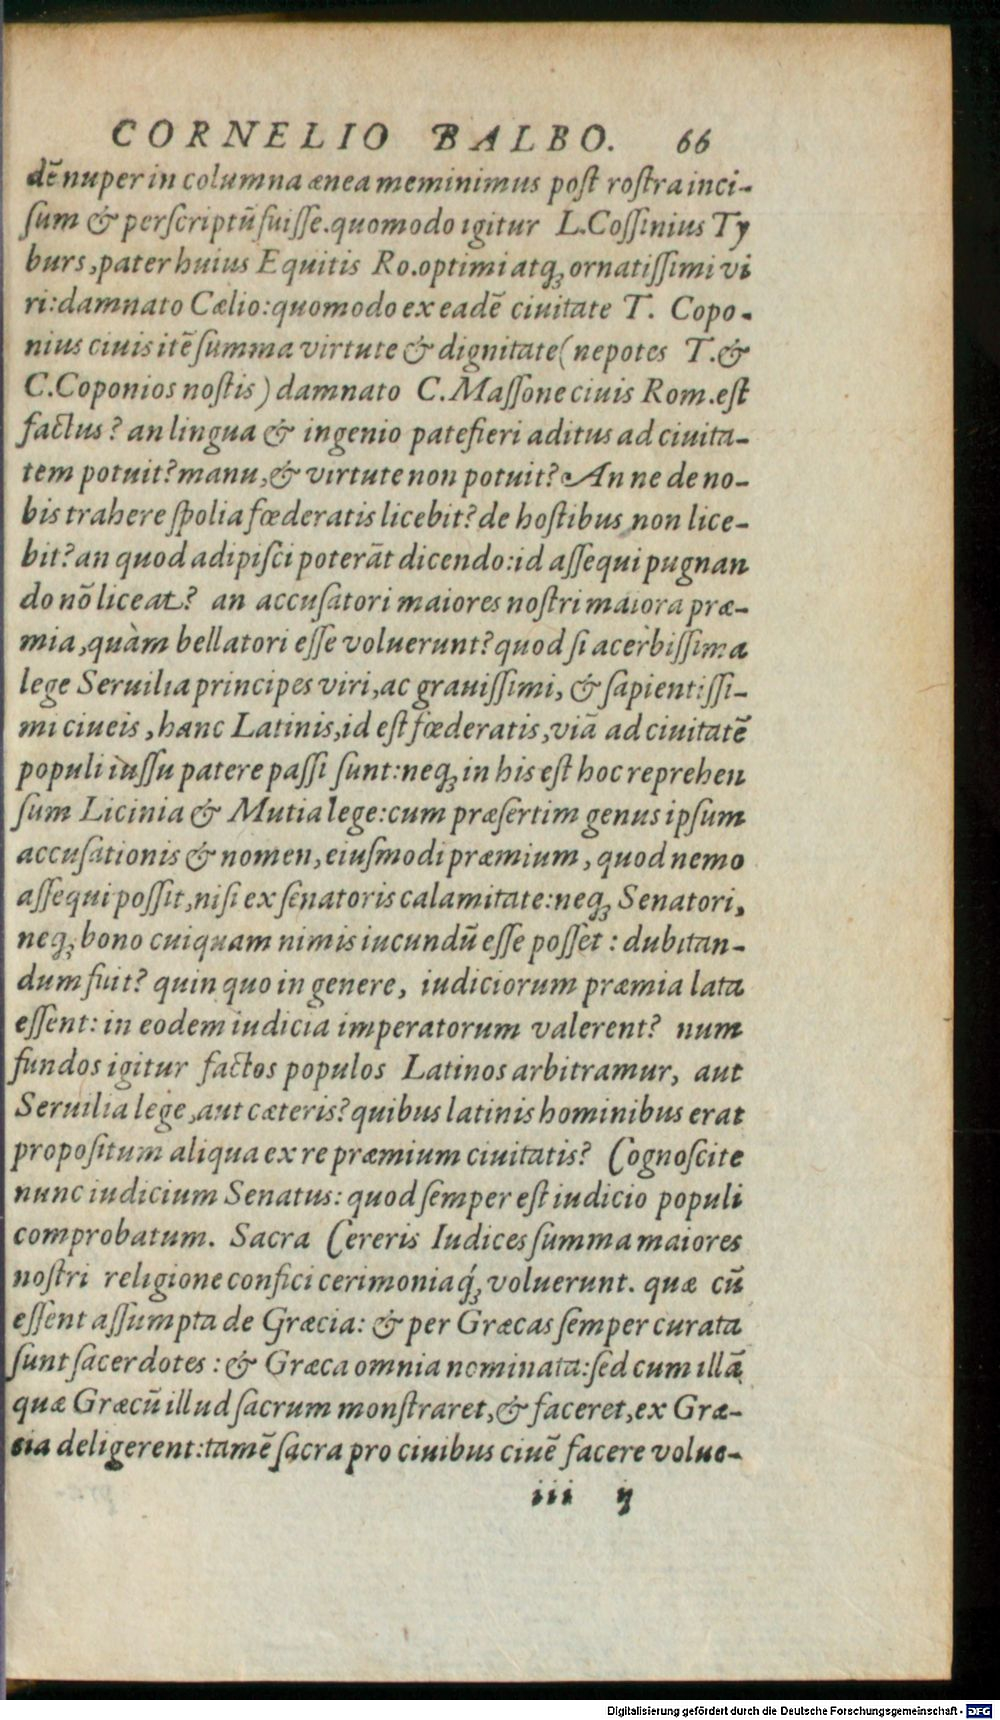 CORNELIO BALBO. 66
dē nuper in columna ænea meminimus poſt roſtra inci-
ſum & perſcriptū fuiſſe. quomodo igitur L. Coſſinius Ty
burs, pater huius Equitis Ro. optimi atq; ornatiſſimi vi
ri: damnato Cælio: quomodo ex eadē ciuitate T. Copo-
nius ciuis itē ſumma virtute & dignitate (nepotes T. &
C. Coponios noſtis) damnato C. Maſſone ciuis Rom. eſt
factus? an lingua & ingenio patefieri aditus ad ciuita-
tem potuit? manu, & virtute non potuit? An ne de no-
bis trahere ſpolia fœderatis licebit? de hoſtibus non lice-
bit? an quod adipiſci poterāt dicendo: id aſſequi pugnan
do nō liceat? an accuſatori maiores noſtri maiora præ-
mia, quàm bellatori eſſe voluerunt? quod ſi acerbiſſima
lege Seruilia principes viri, ac grauiſſimi, & ſapientiſſi-
mi ciueis, hanc Latinis, id eſt fœderatis, viā ad ciuitatē
populi iuſſu patere paſſi ſunt: neq; in his eſt hoc reprehen
ſum Licinia & Mutia lege: cum præſertim genus ipſum
accuſationis & nomen, eiuſmodi præmium, quod nemo
aſſequi poſſit, niſi ex ſenatoris calamitate: neq; Senatori,
neq; bono cuiquam nimis iucundū eſſe poſſet: dubitan-
dum fuit? quin quo in genere, iudiciorum præmia lata
eſſent: in eodem iudicia imperatorum valerent? num
fundos igitur factos populos Latinos arbitramur, aut
Seruilia lege, aut cæteris? quibus latinis hominibus erat
propoſitum aliqua ex re præmium ciuitatis? Cognoſcite
nunc iudicium Senatus: quod ſemper eſt iudicio populi
comprobatum. Sacra Cereris Iudices ſumma maiores
noſtri religione confici cerimoniaq́; voluerunt. quæ cū
eſſent aſſumpta de Græcia: & per Græcas ſemper curata
ſunt ſacerdotes: & Græca omnia nominata: ſed cum illā
quæ Græcū illud ſacrum monſtraret, & faceret, ex Græ-
cia deligerent: tamē ſacra pro ciuibus ciuē facere volue-
iii ij
Digitalisierung gefördert durch die Deutsche Forschungsgemeinschaft - DFG